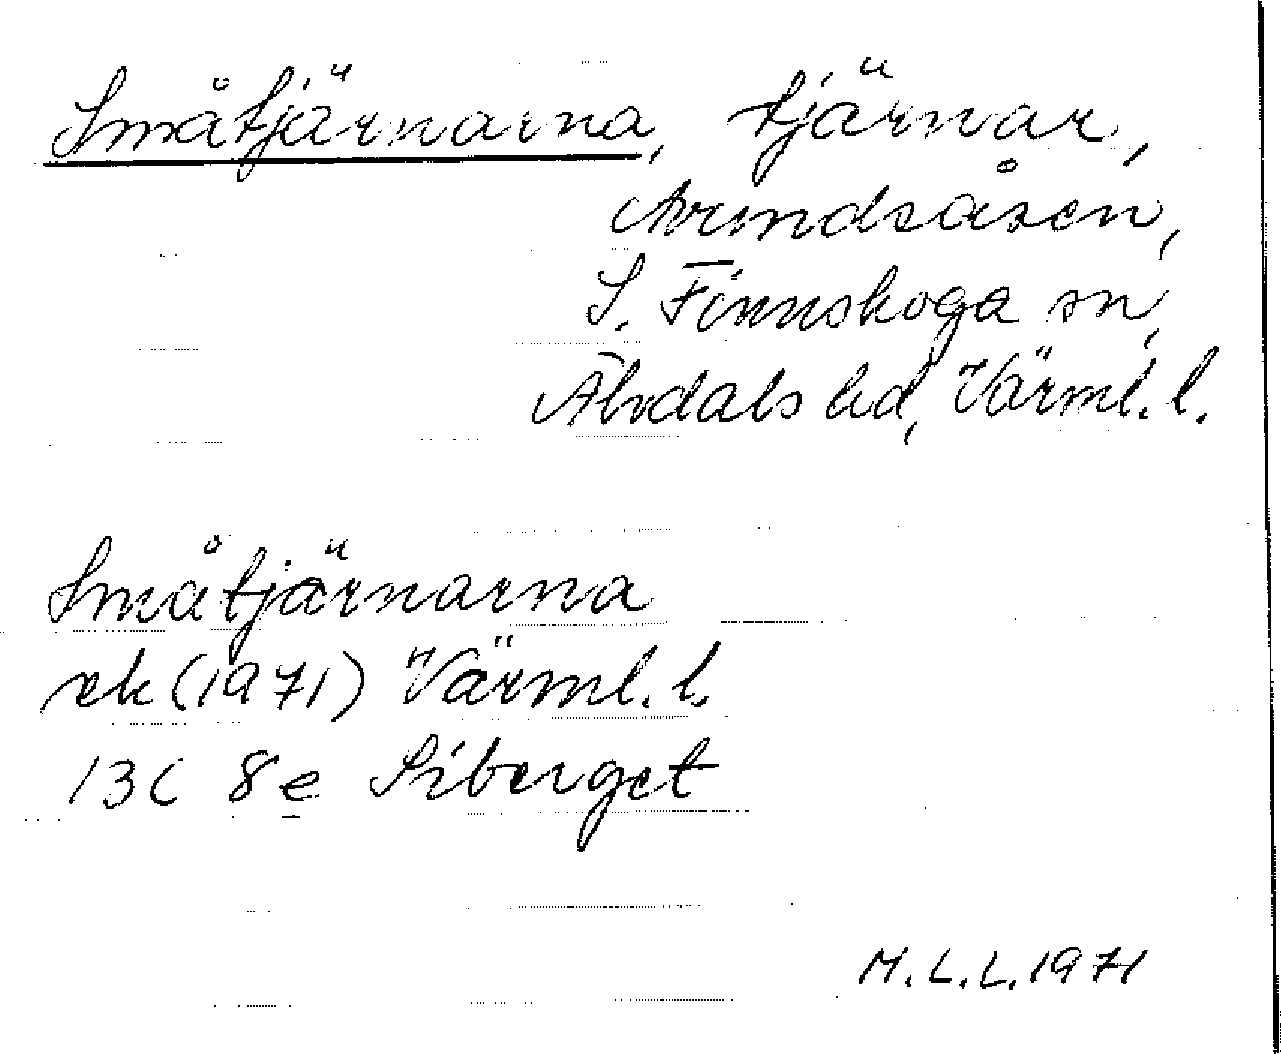 Småtjärnarna, tjärnar,
Arundsåsen,
S. Finnskoga sn,
Älvdals hd, Värml. l.
Småtjärnarna
ek (1971) Värml. l.
13C 8e Siberget
M.L.L. 1971